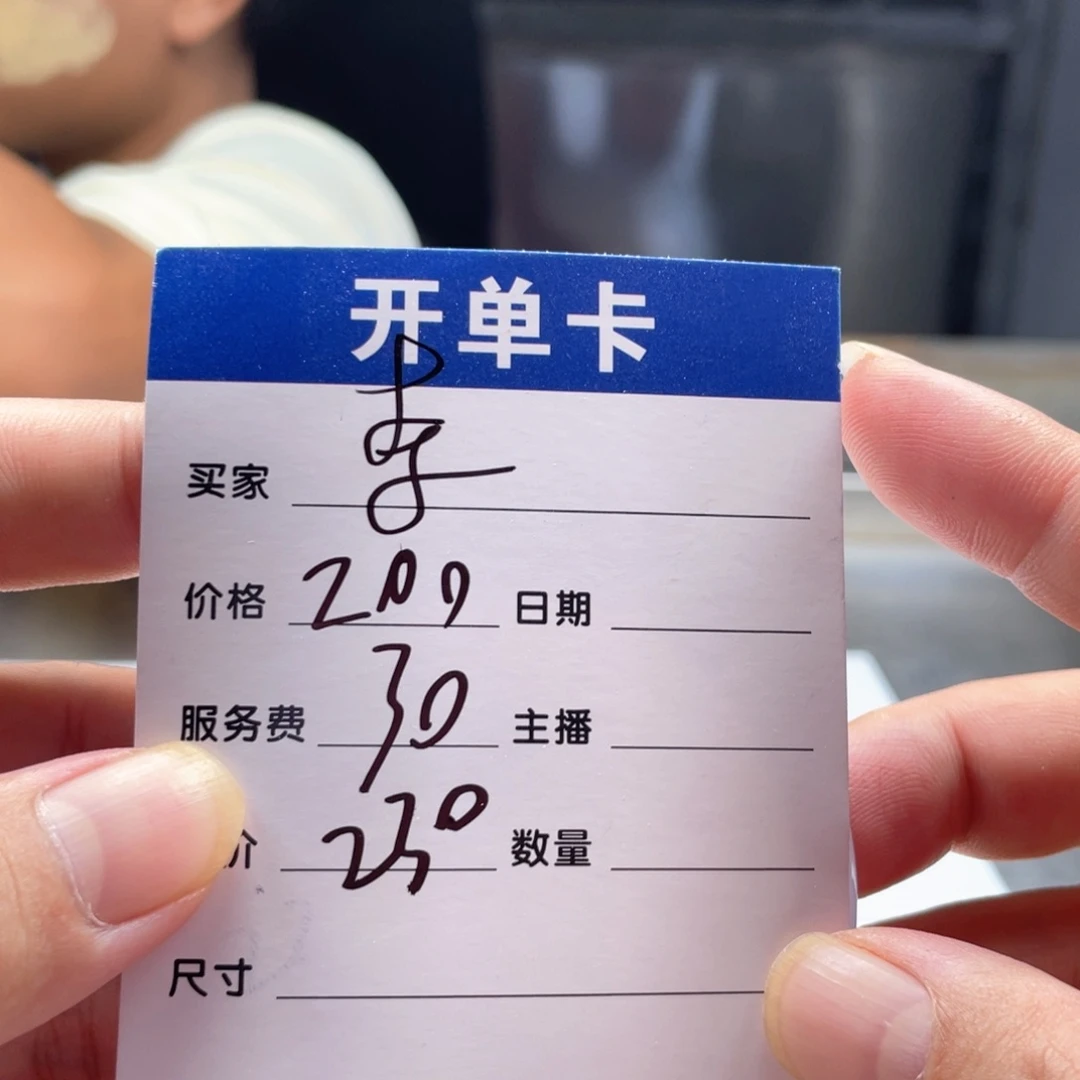 开单卡
买家 李
价格 200 日期
服务费 30 主播
价 230 数量
尺寸